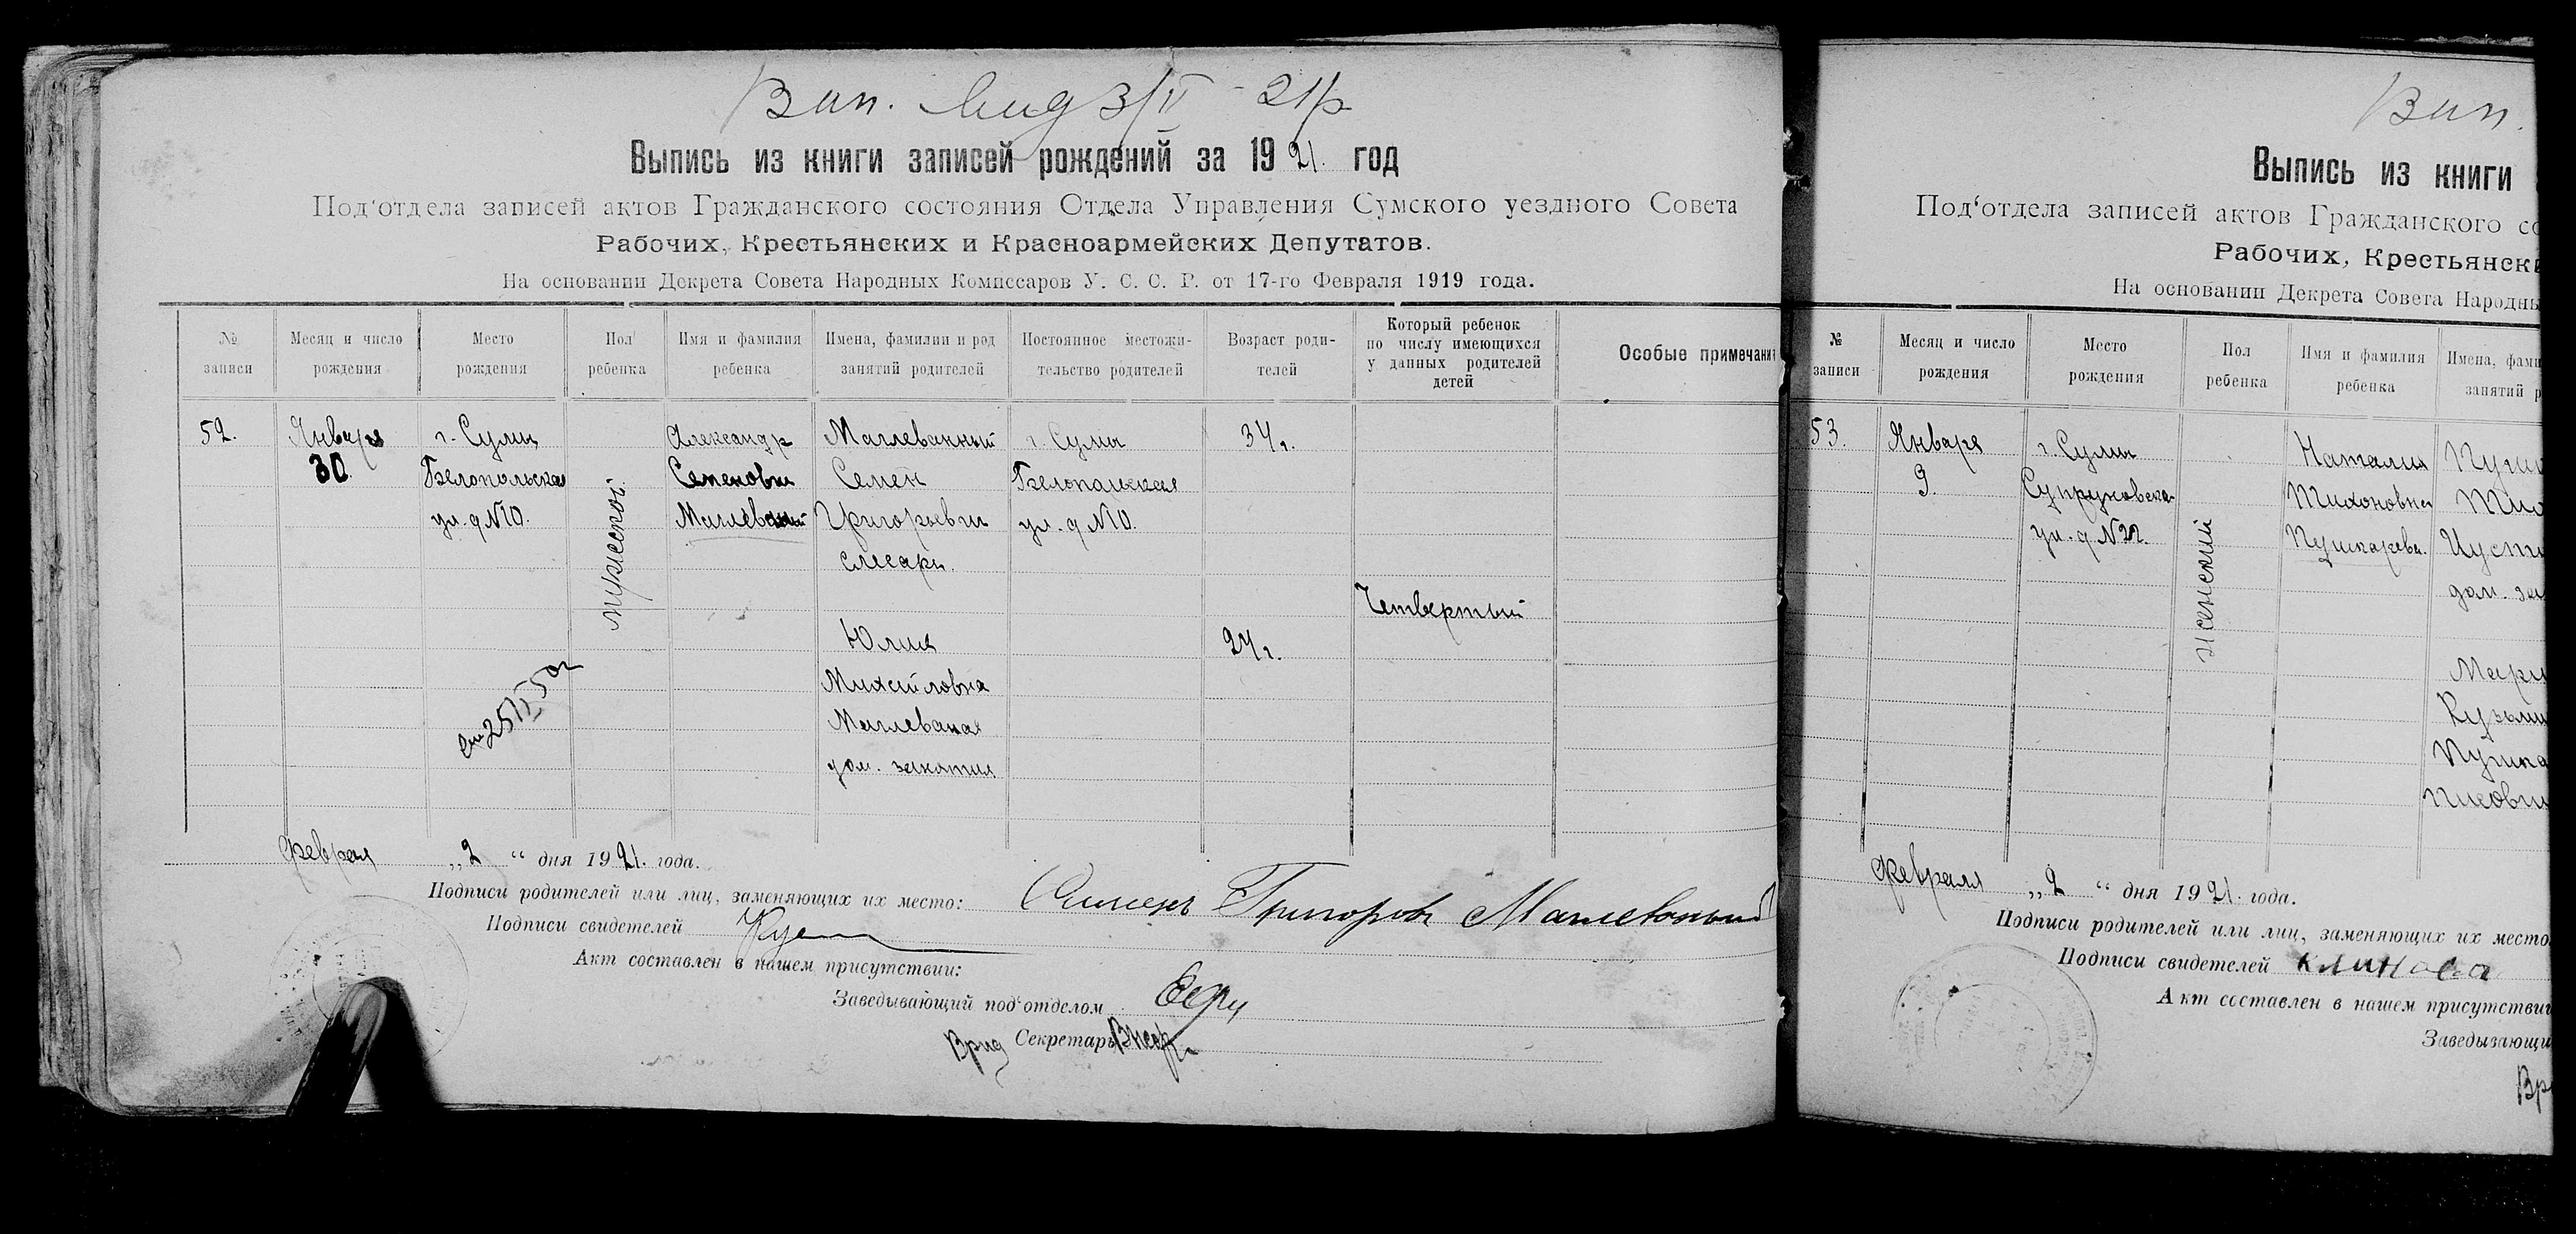 Вип. вид 3/II - 21р
Выпись из книги записей рождений за 1921. год
Под'отдела записей актов Гражданского состояния Отдела Управления Сумского уездного Совета
Рабочих, Крестьянских и Красноармейских Депутатов.
На основании Декрета Совета Народных Комиссаров У. С. С. Р. от 17-го Февраля 1919 года.
№ записи
Месяц и число рождения
Место рождения
Пол ребенка
Имя и фамилия ребенка
Имена, фамилии и род занятий родителей
Постоянное местожи-
тельство родителей
Возраст роди-
телей
Который ребенок
по числу имеющихся
у данных родителей
детей
Особые примечания
52.
Января
30.
г. Сумы
Белопольская
ул. д №10.
мужеской
Александр
Семенович
Маглеваный
Маглеванный
Семен
Григорьевич
слесарь.
Юлия
Михайловна
Маглеваная
дом. занятия
г. Сумы
Белопольская
ул. д №10.
34 г.
24 г.
Четвертый
февраля „2“ дня 1921. года.
Подписи родителей или лиц, заменяющих их место: Семенъ Григоров Маглеваный
Подписи свидетелей
Акт составлен в нашем присутствии:
Заведывающий под'отделом
Врид Секретарь
Вип.
Выпись из книги
Под'отдела записей актов Гражданского со
Рабочих, Крестьянски
На основании Декрета Совета Народны
№ записи
Месяц и число рождения
Место рождения
Пол ребенка
Имя и фамилия ребенка
Имена, фами
занятий р
53.
Января
9.
г. Сумы
Супруновская
ул. д №22.
женский
Наталия
Тихоновна
Пушкарева.
дом. за
Мари
Кузьми
Пушка
февраля „2“ дня 1921. года.
Подписи родителей или лиц, заменяющих их место
Подписи свидетелей
Акт составлен в нашем присутствии
Заведывающи
Вр